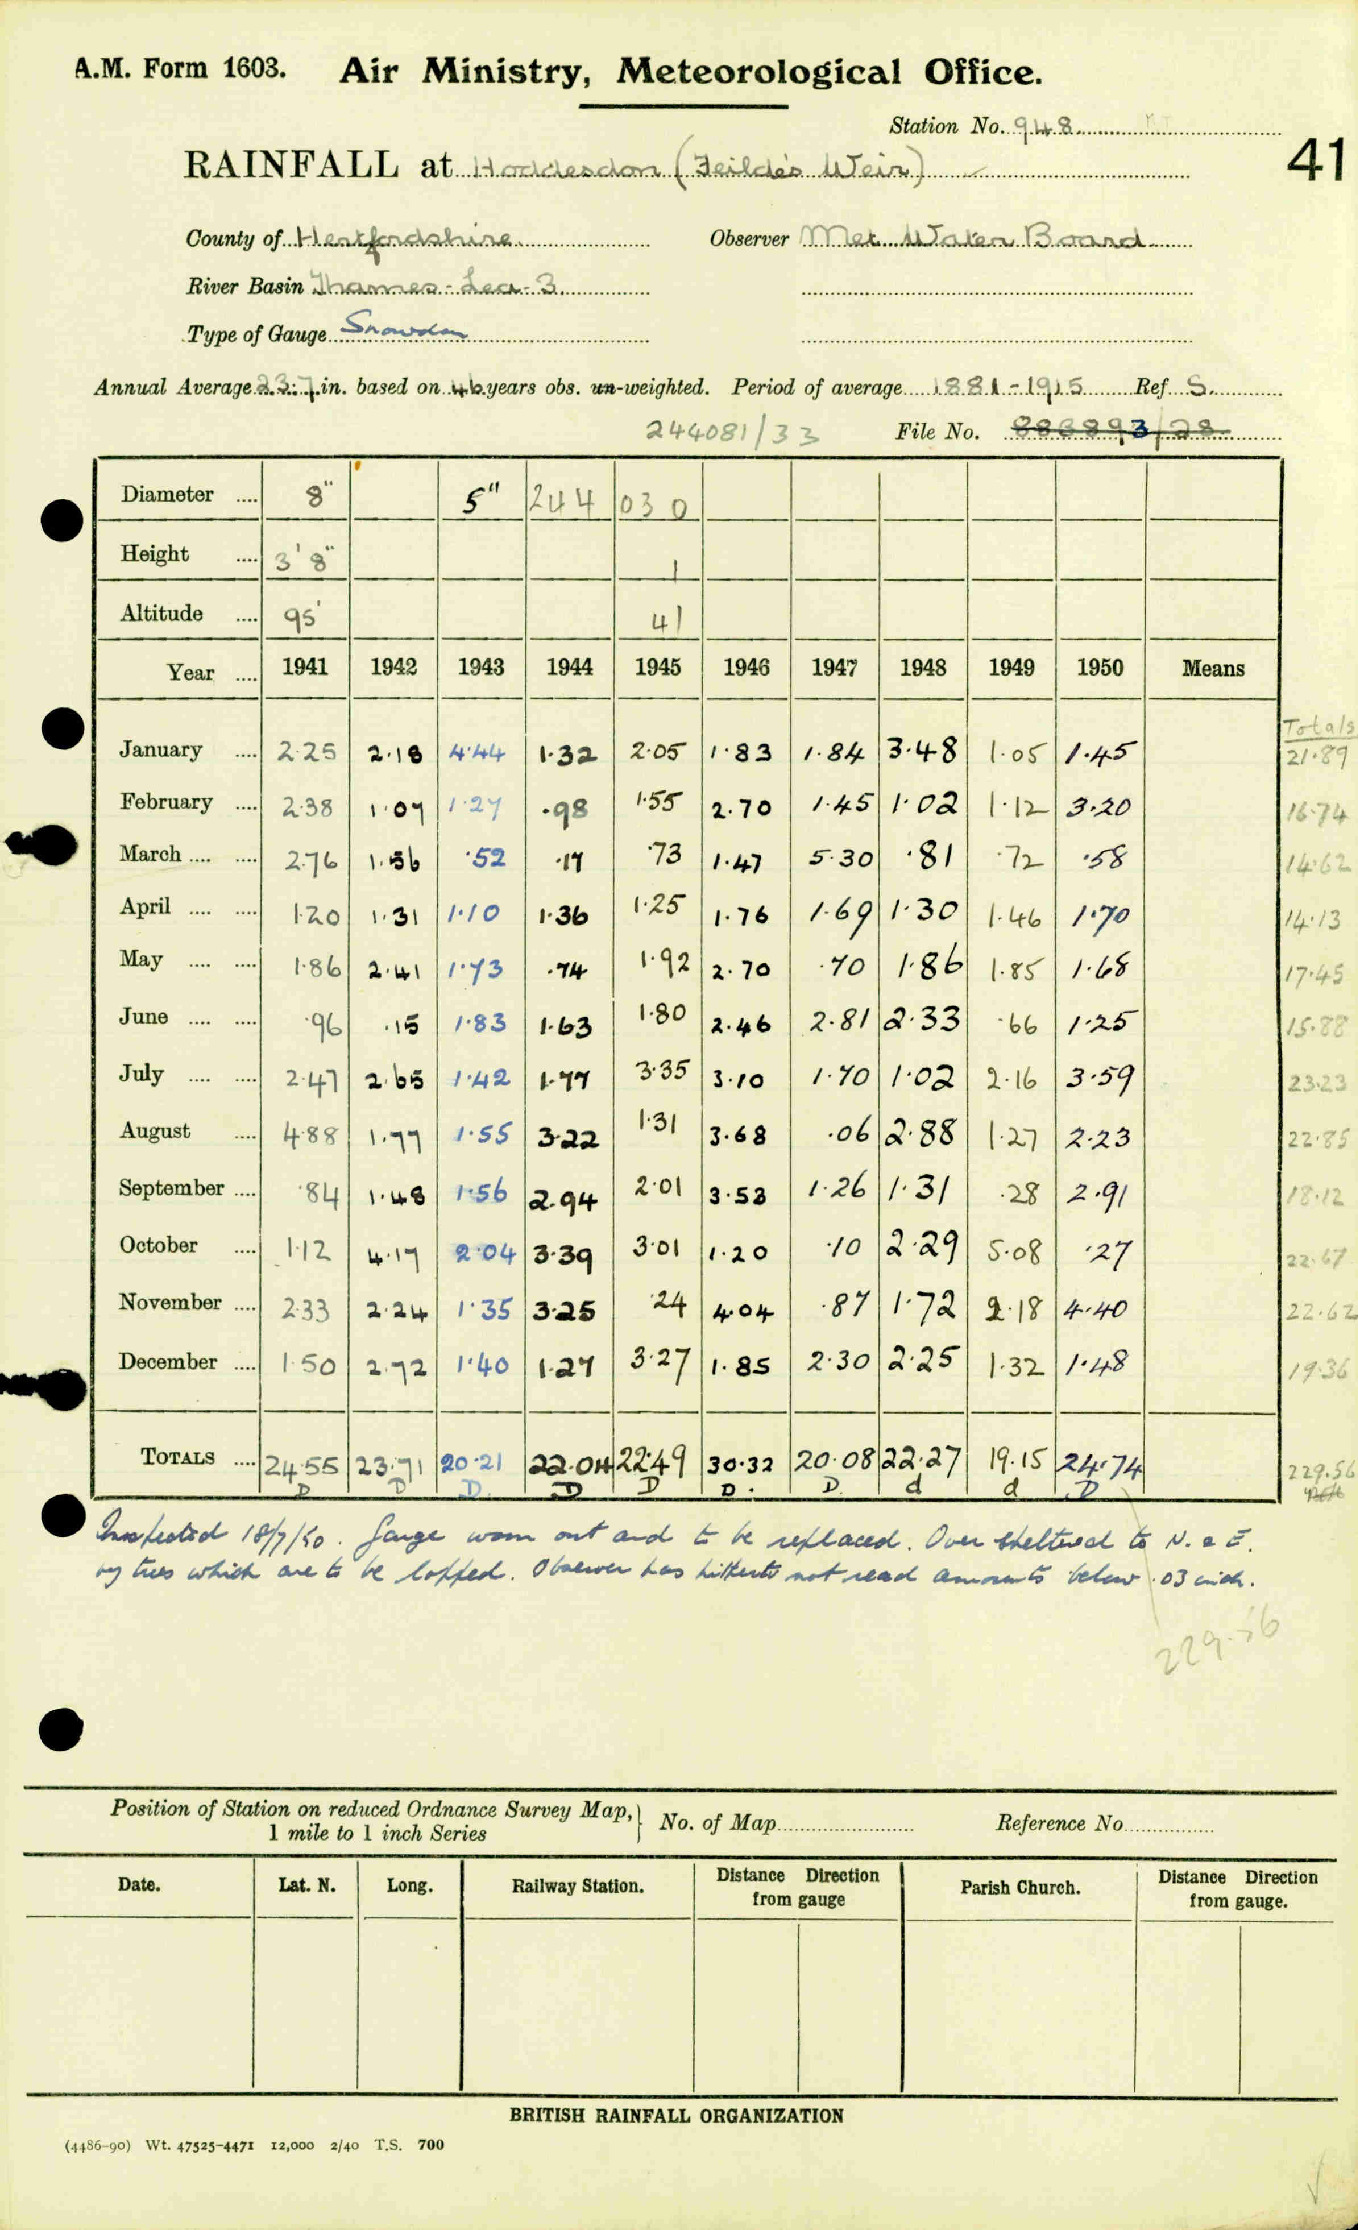 A.M. Form 1603. Air Ministry, Meteorological Office.
Station No. 948
RAINFALL at Hoddesdon (Feilde's Weir) 41
County of Hertfordshire Observer Met. Water Board
River Basin Thames - Lea - 3
Type of Gauge Snowdon
Annual Average 23.7 in. based on 46 years obs. un-weighted. Period of average 1881-1915 Ref. S.
244081/33 File No. 886893/28
Diameter .... 8" 5" 244 030
Height .... 3' 8" 1
Altitude .... 95' 41
Year .... 1941 1942 1943 1944 1945 1946 1947 1948 1949 1950 Means
Totals
January .... 2.25 2.18 4.44 1.32 2.05 1.83 1.84 3.48 1.05 1.45 21.89
February .... 2.38 1.07 1.27 .98 1.55 2.70 1.45 1.02 1.12 3.20 16.74
March .... .... 2.76 1.56 .52 .17 .73 1.47 5.30 .81 .72 .58 14.62
April .... .... 1.20 1.31 1.10 1.36 1.25 1.76 1.69 1.30 1.46 1.70 14.13
May .... .... 1.86 2.41 1.73 .74 1.92 2.70 .70 1.86 1.85 1.68 17.45
June .... .... .96 .15 1.83 1.63 1.80 2.46 2.81 2.33 .66 1.25 15.88
July .... .... 2.47 2.65 1.42 1.77 3.35 3.10 1.70 1.02 2.16 3.59 23.23
August .... 4.88 1.77 1.55 3.22 1.31 3.68 .06 2.88 1.27 2.23 22.85
September .... .84 1.48 1.56 2.94 2.01 3.53 1.26 1.31 .28 2.91 18.12
October .... 1.12 4.17 2.04 3.39 3.01 1.20 .10 2.29 5.08 .27 22.67
November .... 2.33 2.24 1.35 3.25 .24 4.04 .87 1.72 2.18 4.40 22.62
December .... 1.50 2.72 1.40 1.27 3.27 1.85 2.30 2.25 1.32 1.48 19.36
TOTALS .... 24.55 23.71 20.21 22.04 22.49 30.32 20.08 22.27 19.15 24.74 229.56
D D D. D D D. D d d D
Inspected 18/7/50. Gauge worn out and to be replaced. Over sheltered to N. & E.
by trees which are to be lopped. Observer has hitherto not read amounts below .03 inch.
229.56
Position of Station on reduced Ordnance Survey Map,
1 mile to 1 inch Series } No. of Map Reference No.
Date. Lat. N. Long. Railway Station. Distance Direction from gauge Parish Church. Distance Direction from gauge.
BRITISH RAINFALL ORGANIZATION
(4486-90) Wt. 47525-4471 12,000 2/40 T.S. 700